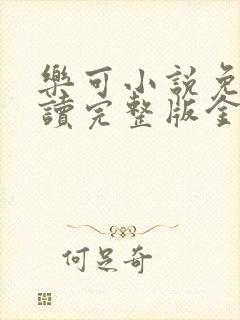 樂可小說免
讀完整版全
何足奇